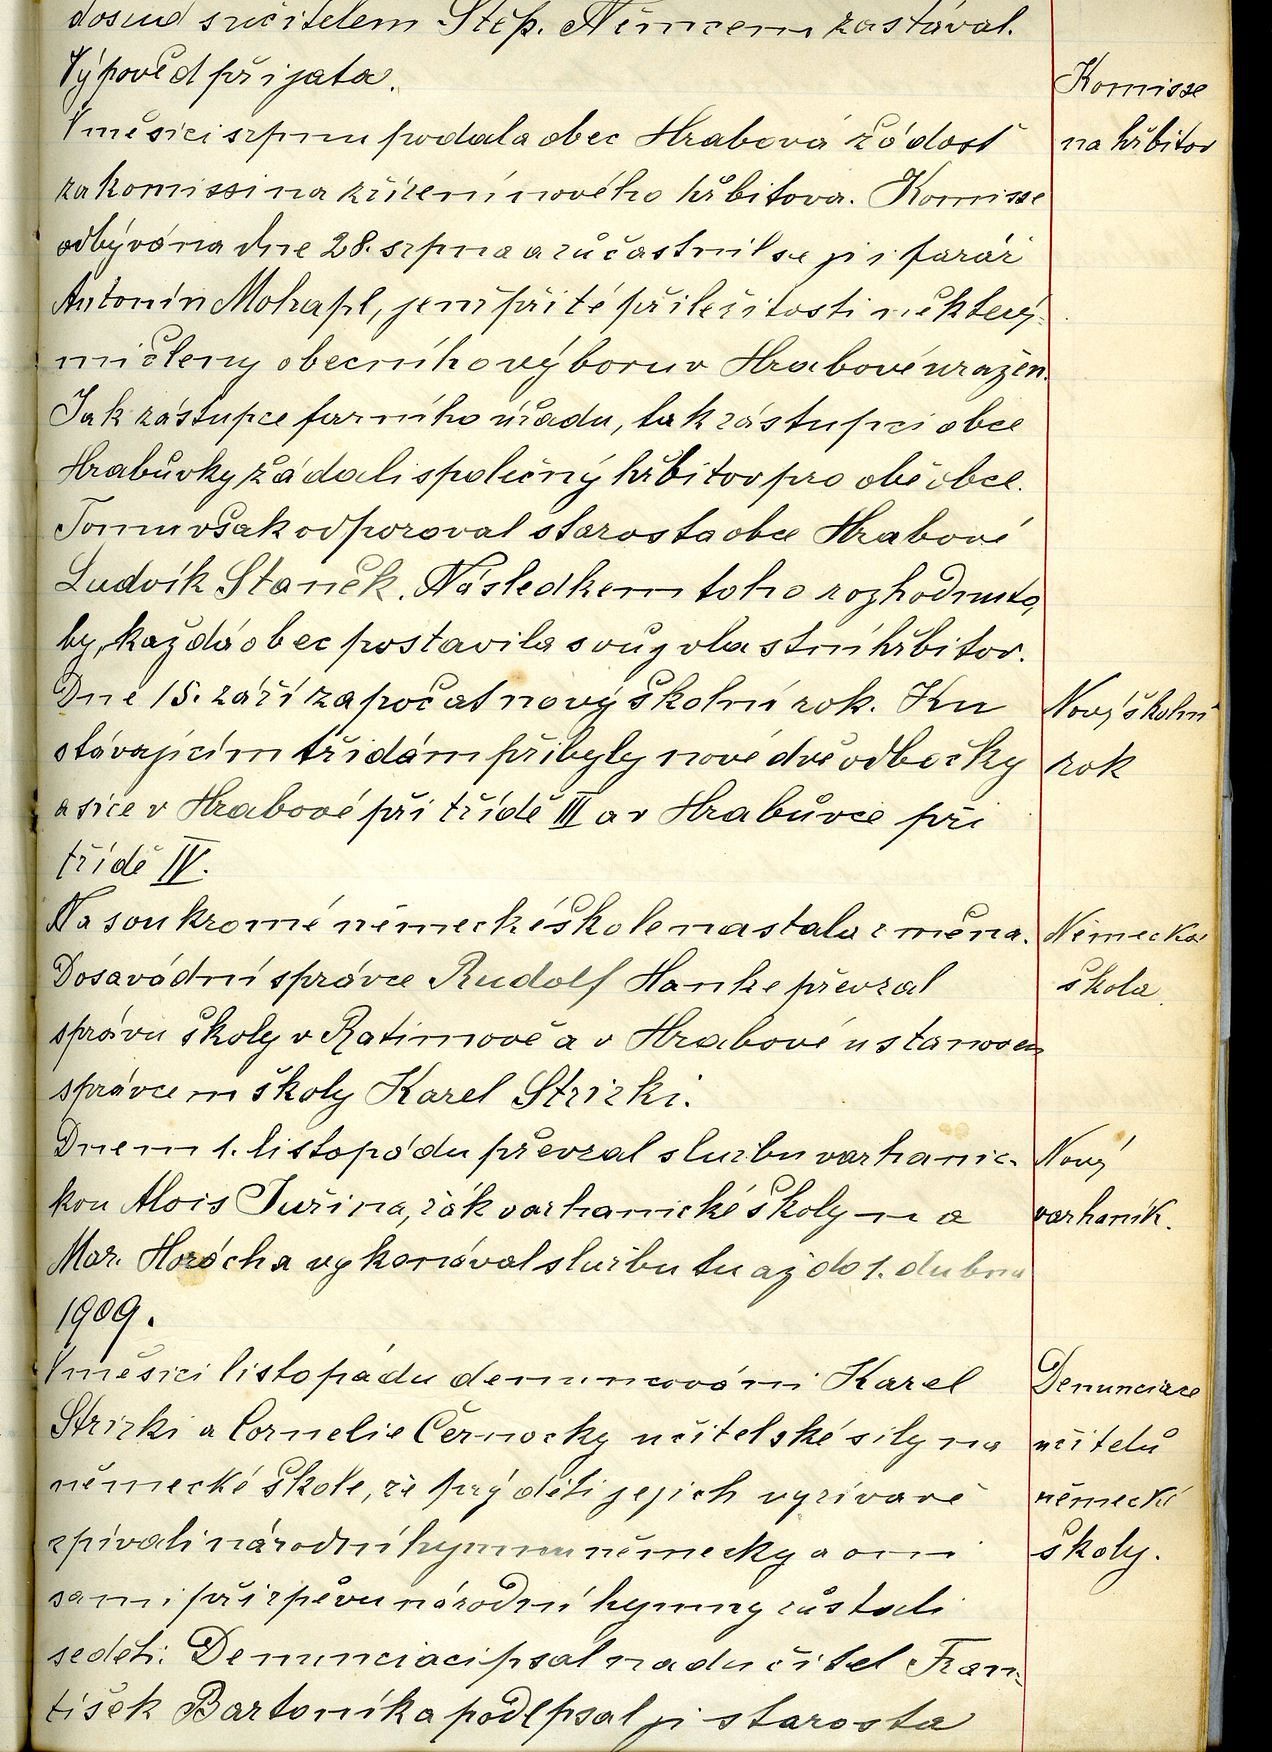 dosud s učitelem Štěp. Němcem zastával.
Výpověd přijata.
Komisse
na hřbitov
V měsíci srpnu podala obec Hrabová žádost
za komissi na zřízení nového hřbitova. Komisse
odbývána dne 28. srpna a zúčastnil se jí i farář
Antonín Mohapl, jenž při té příležitosti některý-
mi členy obecního výboru v Hrabové uražen.
Jak zástupce farního úřadu, tak zástupci obce
Hrabůvky žádali společný hřbitov pro obě obce.
Tomu však odporoval starosta obce Hrabové
Ludvík Staněk. Následkem toho rozhodnuto,
by, každá obec postavila svůj vlastní hřbitov.
Nový školní
rok
Dne 15. září započat nový školní rok. Ku
stávajícím třídám přibyly nové dvě odbočky
a sice v Hrabové při třídě III a v Hrabůvce při
třídě IV.
Německá
škola.
Na soukromé německé škole nastala změna.
Dosavádní správce Rudolf Hanke převzal
správu školy v Ratimově a v Hrabové ustanoven
správcem školy Karel Strizki.
Nový
varhaník.
Dnem 1. listopádu převzal službu varhanic-
kou Alois Juřina, žák varhanické školy na
Mar. Horách a vykonával službu tu až do 1. dubna
1909.
Denunciace
učitelů
německé
školy.
V měsíci listopadu denuncováni Karel
Strizki a Cornelie Černocky učitelské síly na
německé škole, že prý děti jejich vyzívavě
zpívali národní hymnu německy a oni
sami při zpěvu národní hymny zůstali
seděti. Denunciaci psal nadučitel Fran-
tišek Bartoník a podepsal ji starosta